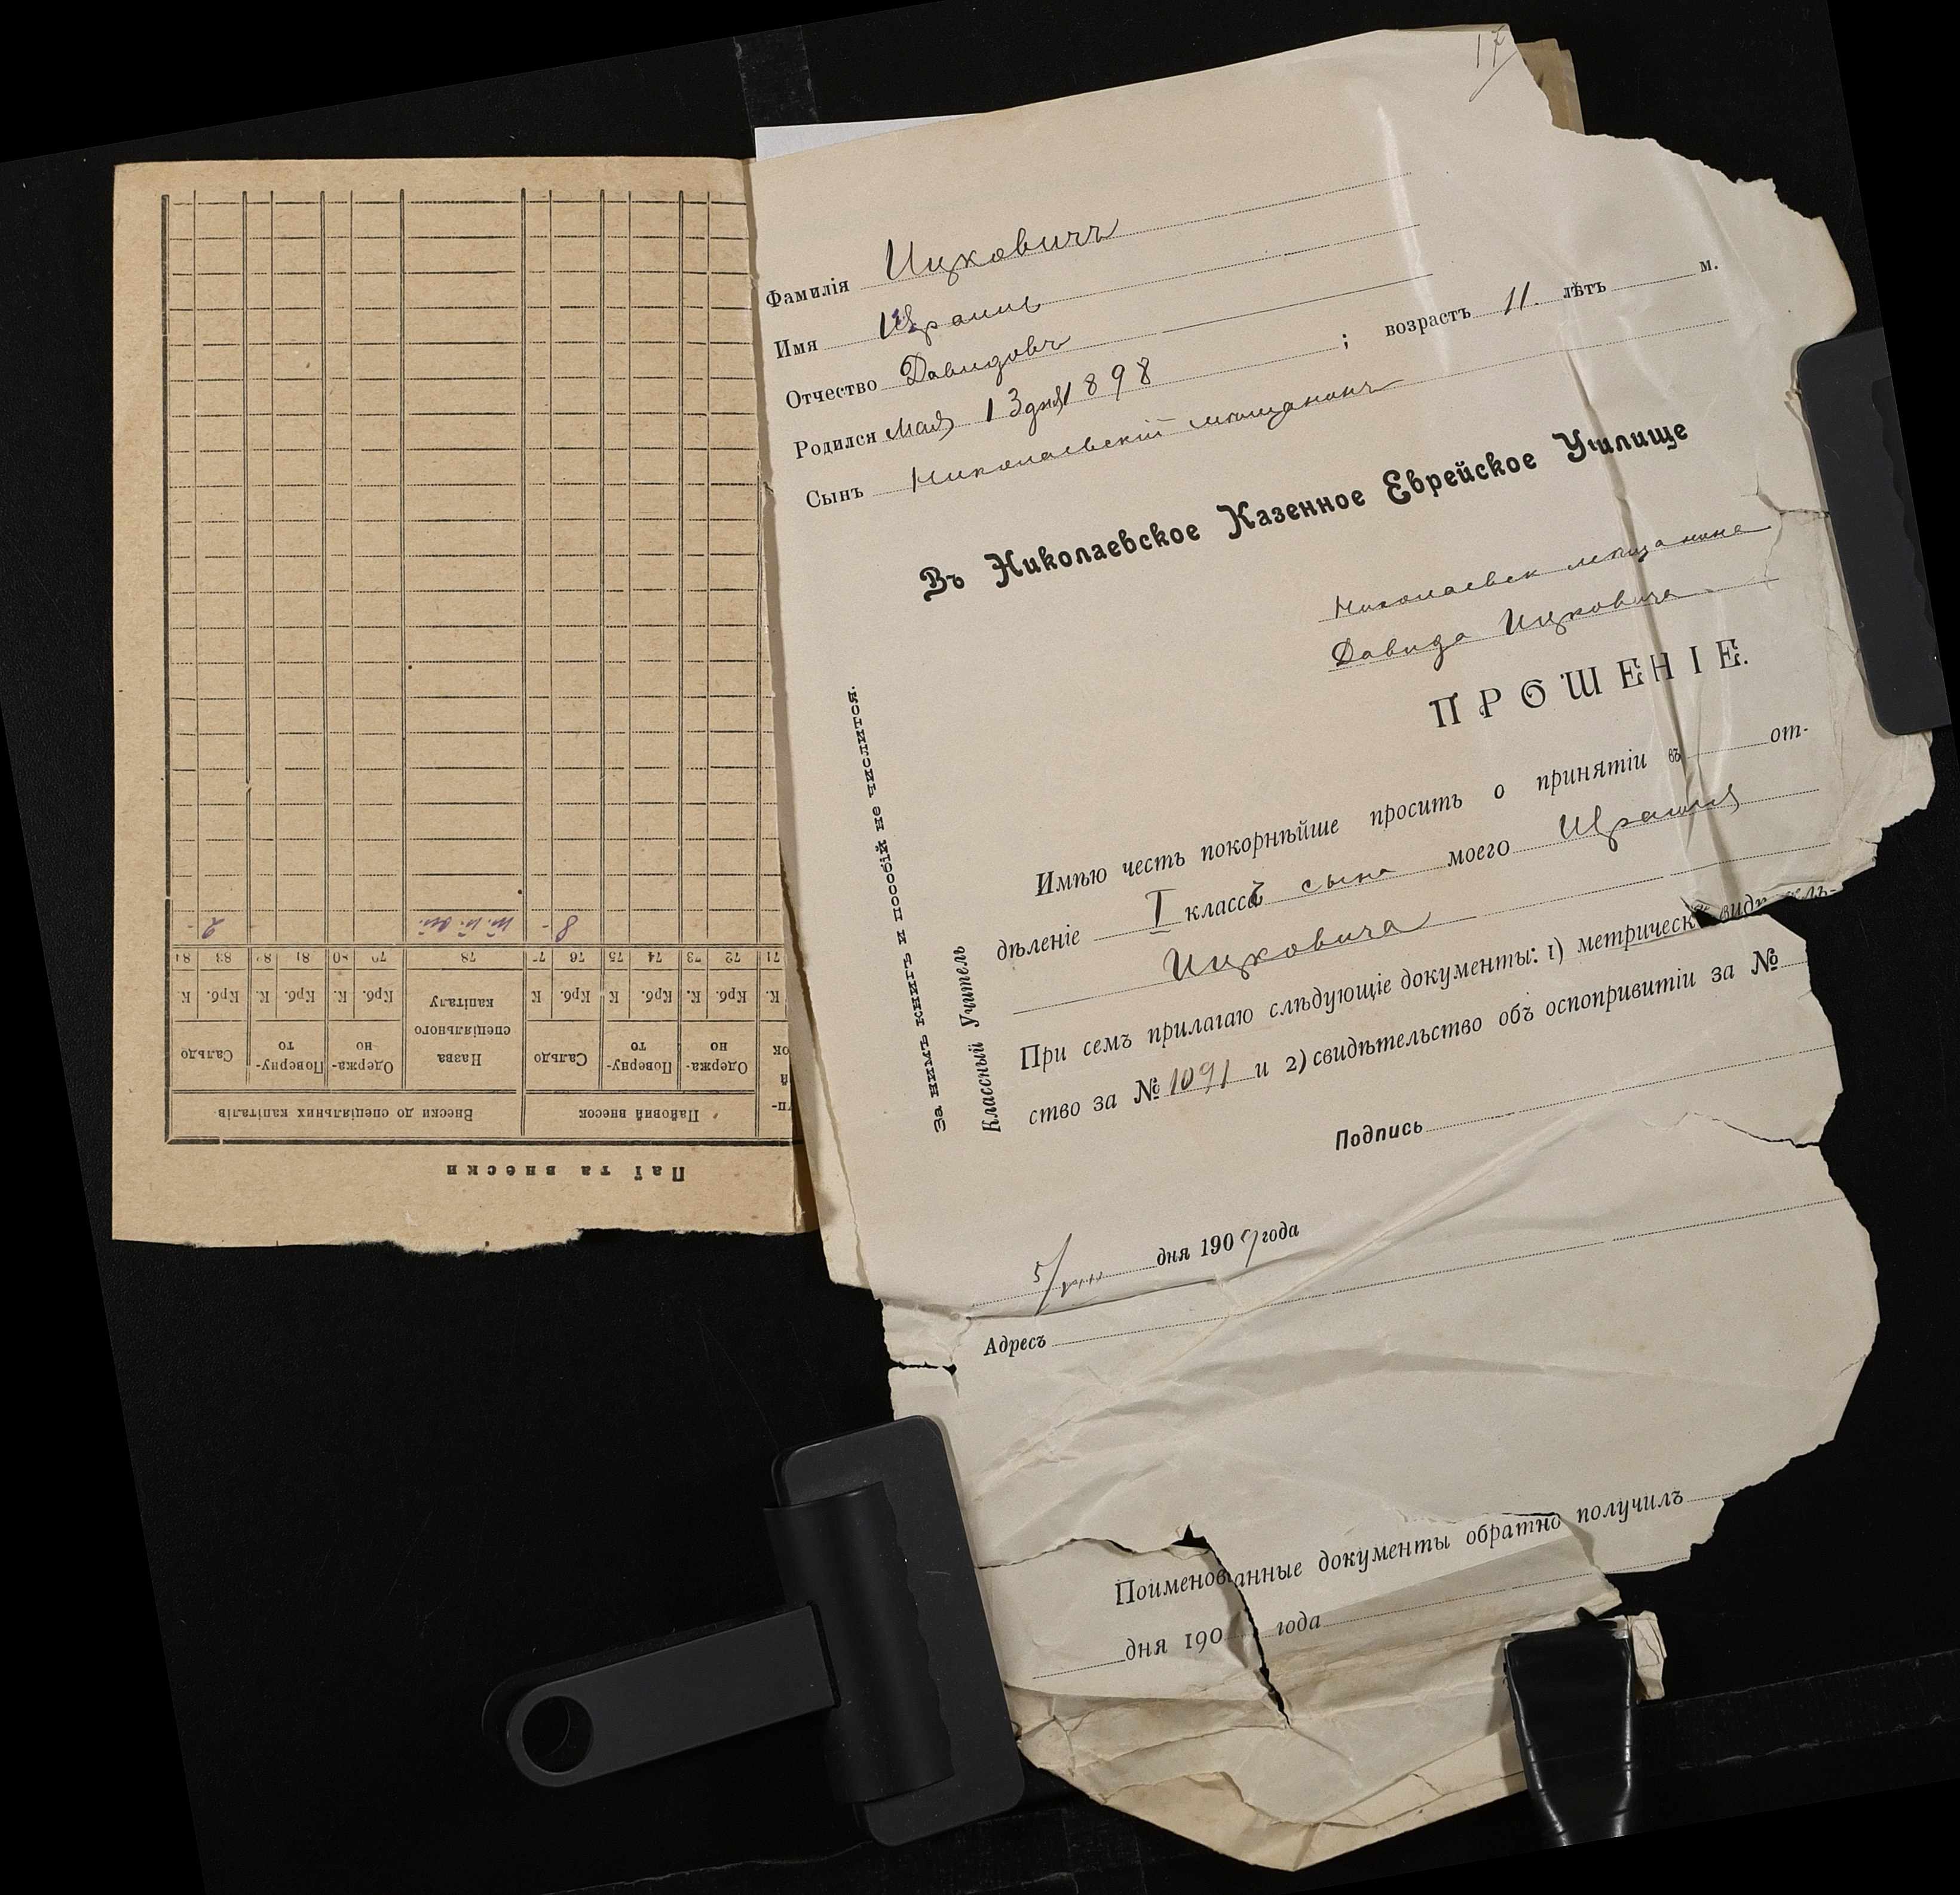 17
Фамилія Ицковичъ
Имя Израиль
Отчество Давидовъ
Родился мая 13 дня 1898 ; возрастъ 11. лѣтъ м.
Сынъ Николаевскій мѣщанинъ
Въ Николаевское Казенное Еврейское Училище
Николаевск мѣщанина
Давида Ицковича
ПРОШЕНІЕ.
Имѣю честь покорнѣйше просить о принятіи въ от-
дѣленіе I классъ сына моего Израиля
Ицковича
При семъ прилагаю слѣдующіе документы: 1) метрическ видѣтель-
ство за № 1091 и 2) свидѣтельство объ оспопривитіи за №
Подпись
5/VIII дня 1909 года
Адресъ
Поименованные документы обратно получилъ
дня 190 года
За нимъ книгъ и пособій не числится.
Классный Учитель
Паї та внески
Пайовий внесок Внески до спеціяльних капіталів
Одержа-но Поверну-то Сальдо Назва спеціяльного капіталу Одержа-но Поверну-то Сальдо
К. Крб. К. Крб. К Крб. К Крб. К. Крб. К. Крб. К
71 72 73 74 75 76 77 78 79 80 81 82 83 84
8 - 2 -